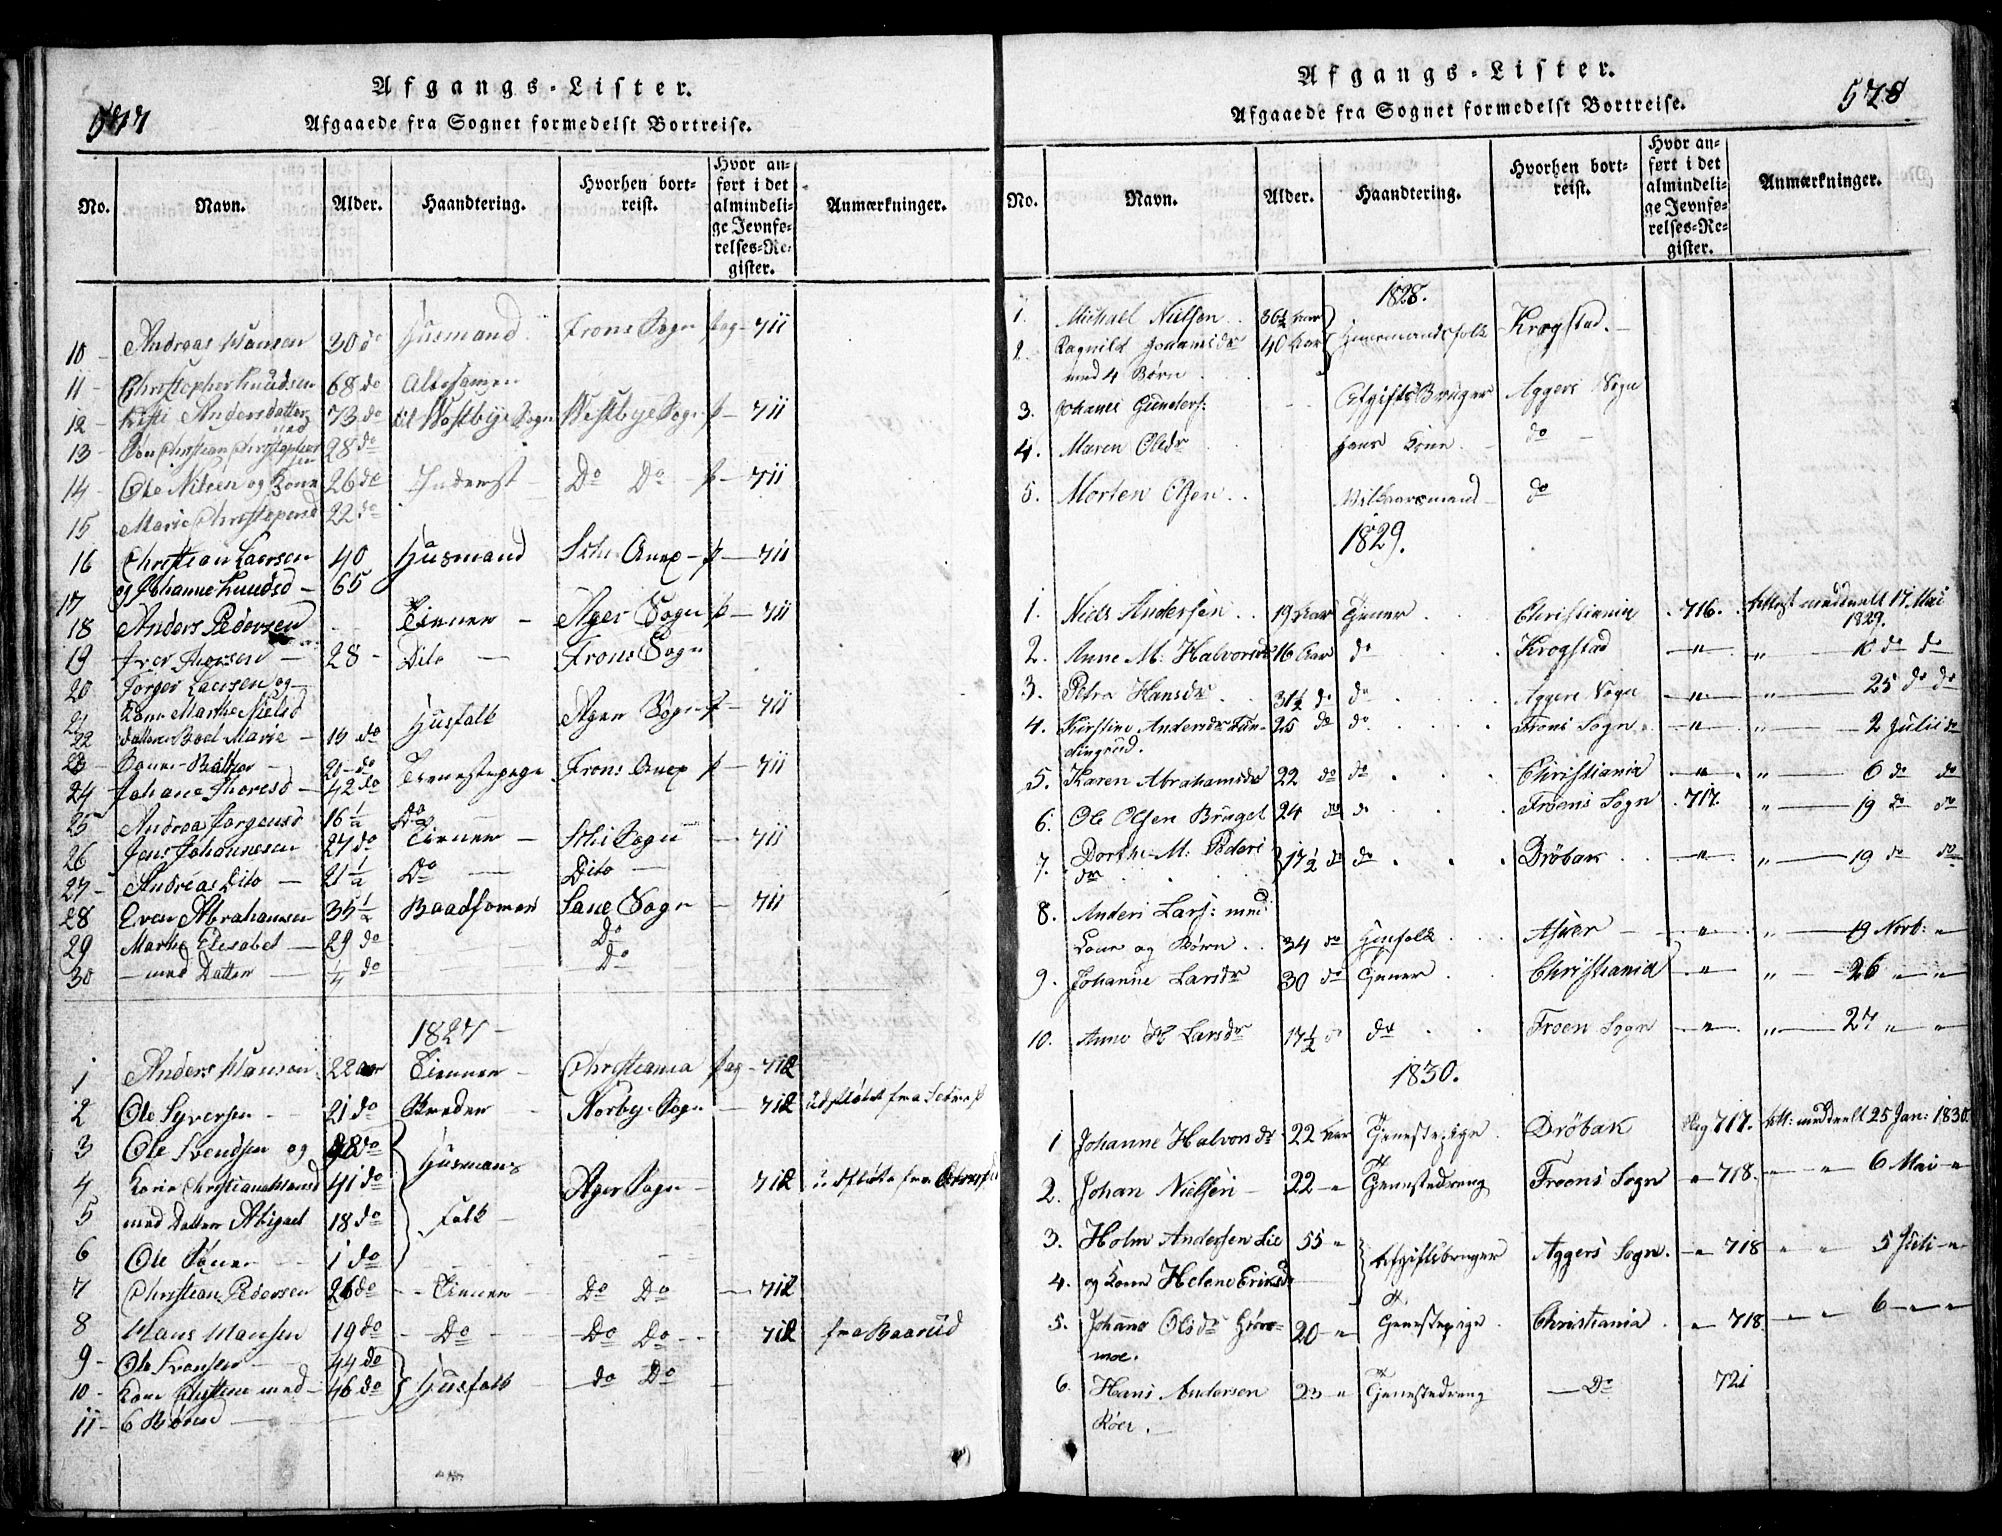 577
Afgangs-Lister.
Afgaaede fra Sognet formedelst Bortreise.
No. Navn. Alder. Haandtering. Hvorhen bortreist. Hvor anført i det almindelige Jevnførelses-Register. Anmærkninger.
10 - Andreas Hansen 30 do Husmand Frons Sogn pag - 711
11 - Christopher Knudsen 68 do Altesamen
12 - Kisti Andersdatter 73 do til Vestbye Sogn Westbye Sogn p - 711
13 - Søn Christian Christophersen 28 do
14 - Ole Nilsen og Kone 26 do Inderst Do Do p - 711
15 Marie Christophersd 22 do
16 Christian Larsen 40 Husmand Schi Anex - p - 711
17 og Johanne Knudsd - 65
18 Anders Pedersen Tiener - Ager Sogn p - 711
19 Iver Thorsen - 28 - Dito - Frons Sogn
20 Jørger Larsen og -
21 Kone Marthe Nielsd Husfolk Ager Sogn p - 711
22 datter Boel Marie - 14 do
23
24 Johane Thoresd - 42 do Tienestepege Frons Anex p - 711
25 Andrea Jørgensd 16 1/2 Do
26 Jens Johannesen 27 do Tiener - Schi Sogn - 711
27 - Andreas Dito - 21 1/2 Do - Dito -
28 Even Abrahamsen 35 1/2 Baadsmand Sane Sogn - 711
29 Marthe Elisabet - 29 do Do
30 - med Datter - 1/4 do Do
1827 -
1 Anders Hansen 22 aar Tiener - Christiania pag - 712
2 Ole Syversen - 21 do Norby Sogn - 712
3 Ole Svendsen og 48 do Husmands
4 Kone Christiane 41 do Ager Sogn - 712
5 med Datter Abigael 18 do Folk -
6 Ole Søner - 1 do
7 Christian Pedersen 26 do - - Tiener - Do Do - 712
8 Hans Hansen 19 do - Do - - Do Do - - 712 fra Baarud
9 - Ole Svensen - 44 do
10 - Kone med - 46 do Husfolk - do Do -
11 - 6 Børn -
578
Afgangs-Lister.
Afgaaede fra Sognet formedelst Bortreise.
No. Navn. Alder. Haandtering. Hvorhen bortreist. Hvor anført i det almindelige Jevnførelses-Register. Anmærkninger.
1828.
1. Michael Nielsen 36 1/2 Aar Huusmandsfolk Krogstad. -
2. Ragnild Johansdr 40 Aar
med 4 Børn
3. Johanes Gunders: Afgifts Bruger Aggers Sogn
4. Maren Olsdr Hans Kone - do -
5. Morten Olsen Vilkaarsmand do
1829.
1. Niels Andersen 19 Aar Tjener Christiania 716. Attest meddeelt 17 Mai
1829.
2. Anne M. Halvorsdr 16 Aar do Krogstad - " - " - 10 do do
3. Petra Hansdr 31 1/2 do do Aggers Sogn - " - " - 25 do do
4. Kirstine Andersdr 25 do do Frons Sogn - " - " - 2 Juli do
5. Karen Abrahamsdr 22 do do Christiania - " - " - 6 do do
6. Ole Olsen Bruget 24 do do Froens Sogn 717. " - 19 do do
7. Dorthe M. Peders dr 17 1/2 do do Drøbak - " - " - 19 do do
8. Anders Lars: med
Kone og Børn 34 do Huusfolk Asker - " - " - 19 Novb: "
9. Johanne Larsdr 30 do Tjener Christiania - " - " - 26 " - "
10. Anne H Larsdr 17 1/2 do do Froen Sogn - " - " - 27 " "
1830.
1 Johanne Halvorsdr 22 Aar Tjenestepige Drøbak Pag 717. Att: meddeelt 25 Jan: 1830.
2. Johan Nielsen - 22 - " Tjenestedreng Froens Sogn " 718. " " 6 Mai "
3. Holm Andersen Lie 55 " Afgiftsbruger Aggers Sogn. - " 718 " " 5 Juli - "
4. og Kone Helene Eriksdr
5. Johanne Olsdr 20 - " Tjenestepige Christiania " 718 - " - 6 - " - "
moe.
6. Hans Andersen 23 " Tjenestedreng - Do 721
Köer.